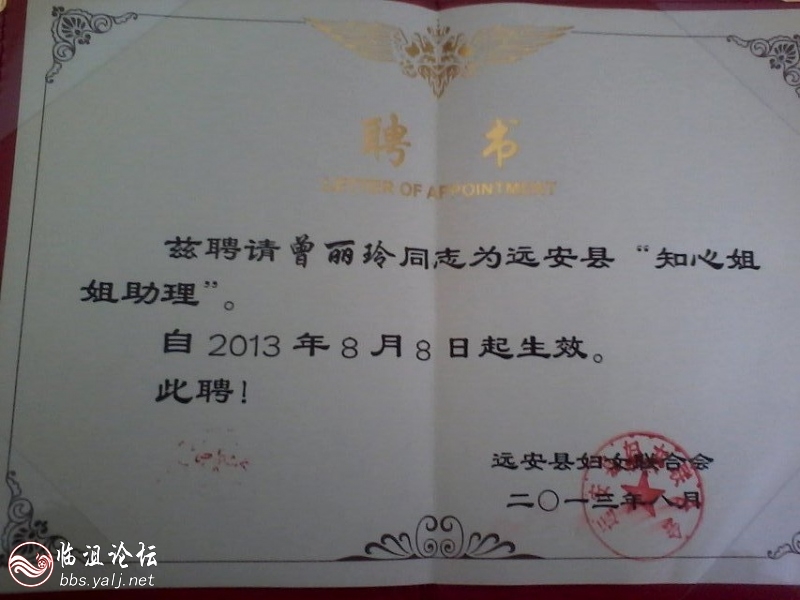 聘 书
LETTER OF APPOINTMENT
兹聘请曾丽玲同志为远安县“知心姐
姐助理”。
自2013年8月8日起生效。
此聘!
远安县妇女联合会
二〇一三年八月
临沮论坛
bbs.yalj.net